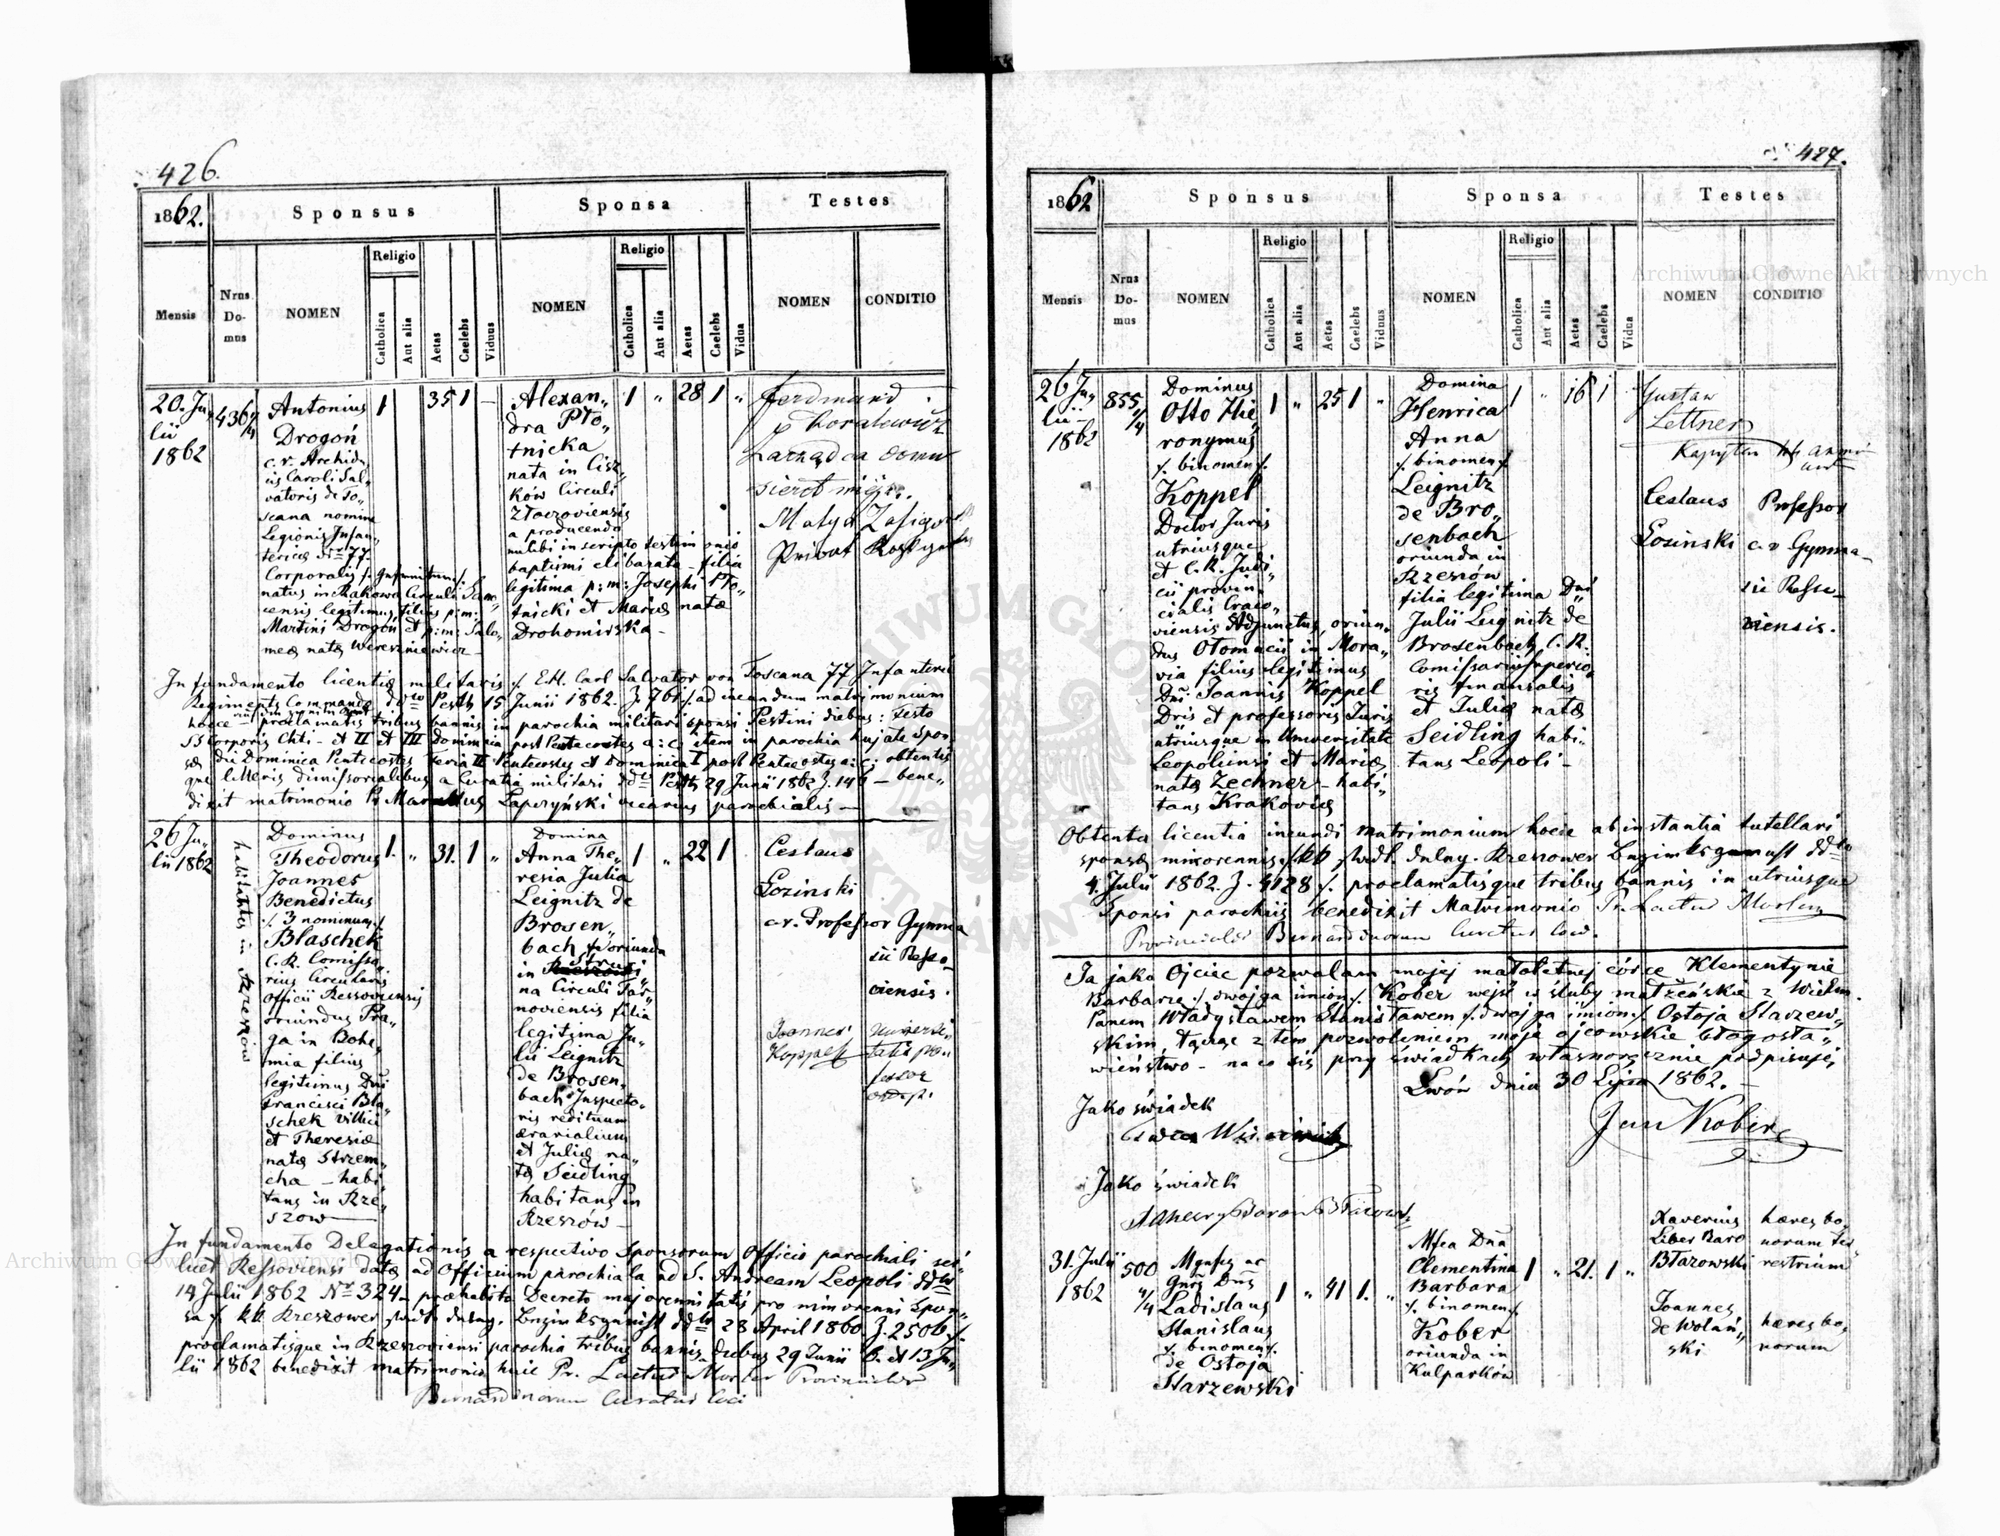 426.
1862.
Sponsus
Sponsa
Testes
Mensis
Nrus Domus
NOMEN
Religio
Catholica
Aut alia
Aetas
Caelebs
Viduus
NOMEN
Religio
Catholica
Aut alia
Aetas
Caelebs
Vidua
NOMEN
CONDITIO
20. Ju„
lii
1862
436 4/4
Antonius
Drogoń
c. r. Archidu„
cis Caroli Sal„
vatoris de To„
scana nomine
Legionis Infan„
teriae Nro 77.
Corporalis
natus in Rakowa Circuli Sam„
legitimus filius p: m:
Martini Drogoń et p: m: Salo„
meae natae Wereszniewicz
1
35
1
–
Alexan„
dra Pło„
tnicka
nata in Cisz„
ków Circuli
Złoczoviensis
a producendo
nullibi in scripto testimonio
baptismi eliberata – filia
legitima p: m: Josephi Pło„
tnicki et Mariae natae
Drohomirska –
1
„
28
1
„
Ferdinand
Zarządca domu
sierot miejs.
Matya
Privat
In fundamento licentiae militaris ./. E.H. Carl Salvator von Toscana 77 Infanterie
Regiments Commando ddto Pesth 15 Junii 1862. Z. 761 ./. ad ineundum matrimonium
hocce proclamatis tribus bannis in parochia militari sponsi Pestini diebus: Festo
SS Corporis Chti – et II et III Dominica post Pentecostes a: c: item in parochia hujate Spon„
sae die Dominica Pentecostes Feria II Pentecostes et Dominica I post Pentecostes a: c: obtentis
que litteris dimissorialibus a Curatia militari ddto Pesth 29 Junii 1862 Z. 149 – bene„
dixit matrimonio Pr Marcellus Łapczyński vicarius parochialis –
26 Ju„
lii 1862
habitantes in Rzeszów
Dominus
Theodorus
Joannes
Benedictus
./. 3 nominum ./.
Blaschek
C. R. Comissa„
rius Circularis
officii Ressoviensis
oriundus Pra„
ga in Bohe„
mia filius
legitimus Dni
Francisci Bla„
schek villici
et Theresiae
natae Strzem„
cha – habi„
tans in Rze„
szow
1.
„
31.
1
„
Domina
Anna The„
resia Julia
Leignitz de
Brosen„
bach oriunda
in Strusi„
na Circuli Tar„
noviensis filia
legitima Ju„
lii Leignitz
de Brosen„
bach Inspecto„
ris redituum
aerarialium
et Juliae na„
tae Seidling
habitans in
Rzeszów –
1
„
22
1
Ceslaus
Łozinski
c. r. Professor Gymna
sii Resso„
viensis.
Joannes
Koppel
In fundamento Delegationis a respectivo Sponsorum officio parochiali sci„
licet Ressoviensi datae ad Officium parochiale ad S. Andream Leopoli ddto
14 Julii 1862 Nro 324 – praehabito Decreto majorennitatis pro minorenni Spon„
sa ./. kk Rzeszower städt. deleg. Bezirksgericht ddto 28 April 1860. Z. 2506 ./.
proclamatisque in Rzeszoviensi parochia tribus bannis diebus 29 Junii 6. et 13 Ju„
lii 1862 benedixit matrimonio huic Pr. Laetus Morler Provincialis
Bernardinorum Curatus loci
427.
1862
Sponsus
Sponsa
Testes
Mensis
Nrus Domus
NOMEN
Religio
Catholica
Aut alia
Aetas
Caelebs
Viduus
NOMEN
Religio
Catholica
Aut alia
Aetas
Caelebs
Vidua
NOMEN
CONDITIO
26 Ju„
lii
1862
855 4/4
Dominus
Otto Hie„
ronymus
./. binomen ./.
Koppel
Doctor Juris
utriusque
et C. R. Judi„
cii provin„
cialis Craco„
viensis Adjunctus, oriun„
dus Olomucii in Mora„
via filius legitimus
Dni Joannis Koppel
Dris et professoris Juris
utriusque in Universitate
Leopoliensi et Mariae
natae Zechner – habi„
tans Krakoviae
1
„
25
1
„
Domina
Henrica
Anna
./. binomen ./.
Leignitz
de Bro„
senbach
oriunda in
Rzeszów
filia legitima Dni
Julii Leignitz de
Brosenbach C. R.
Comissarii superio„
ris finansialis
et Juliae natae
Seidling habi„
tans Leopoli –
1
„
16
1
Gustaw
Lettner
Kapytan
Ceslaus
Łozinski
Professor
c. r. Gymna„
sii Resso„
viensis.
Obtenta licentia ineundi matrimonium hocce ab instantia tutellari
sponsae minorennis ./. kk städt. deleg. Rzeszower Bezirksgericht ddto
4. Julii 1862. Z. 4128 ./. proclamatisque tribus bannis in utriusque
Sponsi parochiis benedixit Matrimonio Pr. Laetus Morler
Provincialis Bernardinorum Curatus loci.
Ja jako Ojciec pozwalam mojej małoletniej córce Klementynie
Barbarze ./. dwojga imion ./. Kober wejść w śluby małżeńskie z Wielm.
Panem Władysławem Stanisławem ./. dwojga imion ./. Ostoja Starzew„
skim, łącząc z tém pozwoleniem moje ojcowskie błogosła„
wieństwo – na co się przy świadkach własnoręcznie podpisuję,
Lwów dnia 30 Lipca 1862. –
Jan Kober
Jako świadek
Jako świadek
31. Julii
1862
500 4/4
Mgnfcg ac
Gnrs Dns
Ladislaus
Stanislaus
./. binomen ./.
de Ostoja
Starzewski
1
„
41
1.
„
Mfca Dna
Clementina
Barbara
./. binomen ./.
Kober
oriunda in
Kulparków
1
„
21.
1
„
Xaverius
Liber Baro
Błazowski
haeres bo„
norum ter„
restrium
Joannes
de Wolań„
ski
haeres bo„
norum
Archiwum Główne Akt Dawnych
Archiwum Główne Akt Dawnych
ARCHIWUM GŁÓWNE AKT DAWNYCH